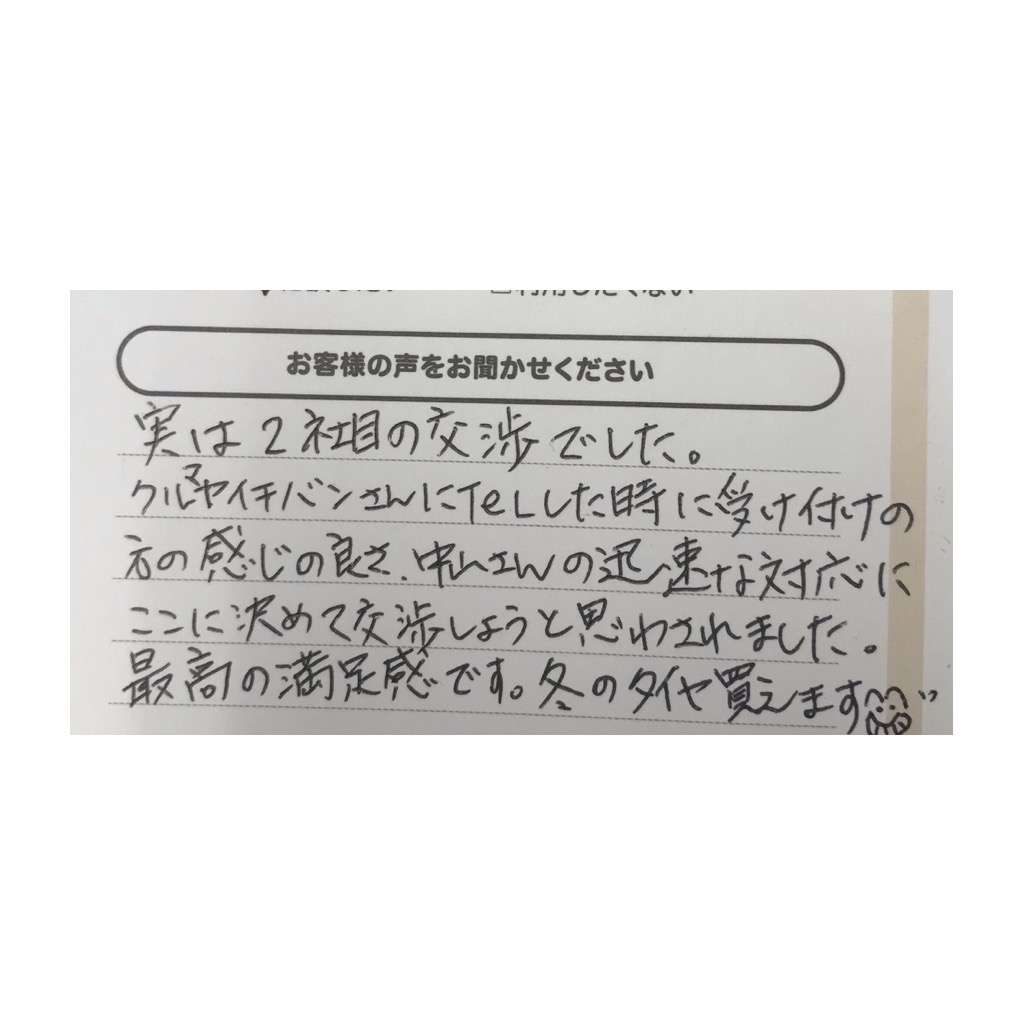 □利用したくない
お客様の声をお聞かせください
実は2社目の交渉でした。
クルマヤイチバンさんにTeLした時に受け付けの
方の感じの良さ、中山さんの迅速な対応に
ここに決めて交渉しようと思わされました。
最高の満足感です。冬のタイヤ買えます